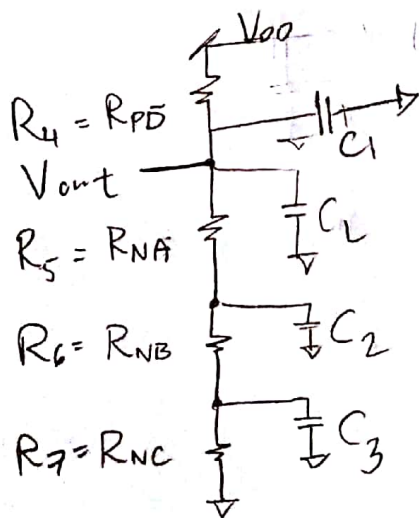 VDD
R4 = RPD̄
C1
Vout
CL
R5 = RNA
R6 = RNB
C2
R7 = RNC
C3